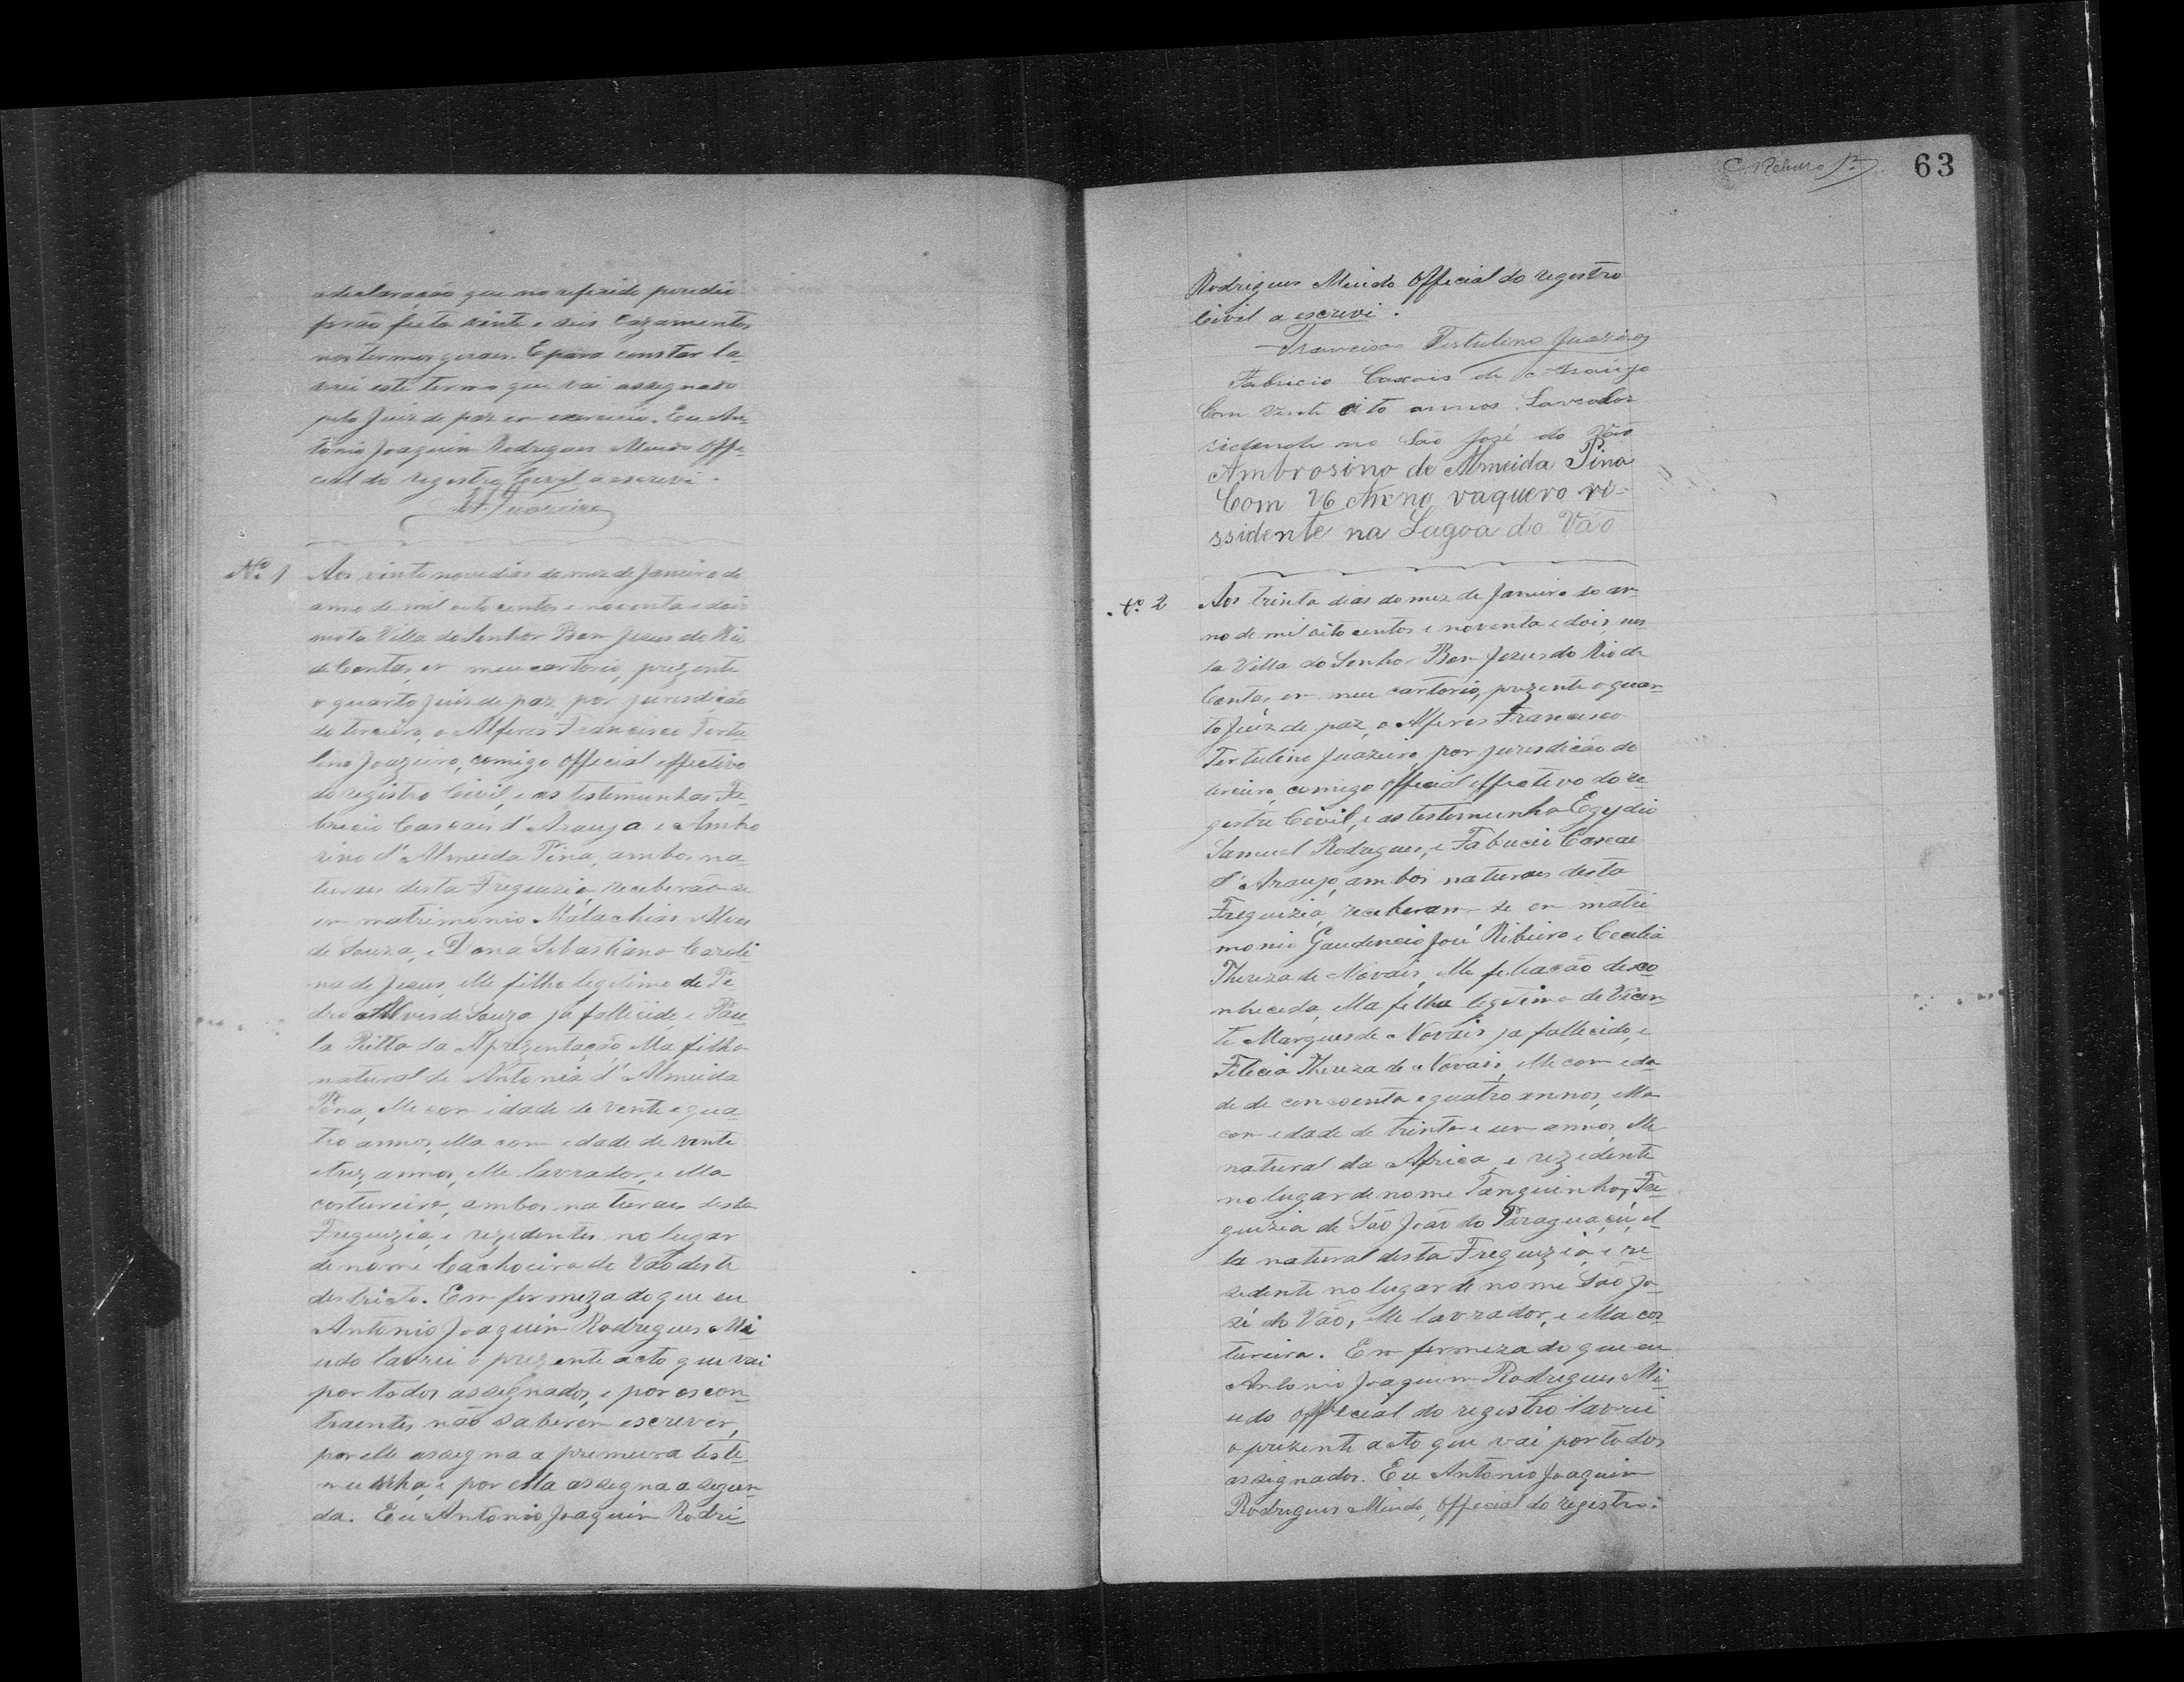 a declaração que no referido predio
forão feito vinte e seis cazamentos
nos termos geraes. E para constar la-
vrei este termo que vai assegnado
pelo Juiz de paz en exercicio. Eu An-
tonio Joaquim Rodrigues Miudo Offe-
cial do registro Civel a escrevi.
Juazeiro
Nº 1
Aos vinte nove dias do mez de Janeiro do
anno de mil oito centos e noventa e dois
nesta Villa do Senhor Bom Jesus do Rio
de Contas, en meu cartorio, prezente
o quarto Juiz de paz, por juresdição
do terceiro, o Alferes Francisco Tertu-
lino Joazeiro, comigo Official effectivo
do registro Civel, e as testemunhas Fa-
bricio Cascais d'Araujo e Ambro
zino d'Almeida Pina, ambos na-
turaes desta Freguezia, receberão-se
en matrimonio Malachias Alves
de Souza, e Dona Sebastiana Caroli-
na de Jesus, elle filho legitimo de Pe-
dro Alves de Souza já fallicido e Pau-
la Ritta da Aprezentação, ella filha
natural de Antonia d'Almeida
Pina, elle con idade de vente e qua-
tro annos, ella con edade de vente
e trez annos, elle lavrador, e ella
costureira, ambos naturaes desta
Freguezia, e rezedentes no lugar
de nome Cachoeira do Vão deste
destricto. Em fermeza do que eu
Antonio Joaquim Rodrigues Mi-
udo lavrei o prezente acto que vai
por todos assegnados, e por os con-
traentes não saberen escrever,
por elle assegna a premeira teste-
munha, e por ella assegna a segun-
da. Eu Antonio Joaquim Rodri-
63
Rodrigues Miudo Official do registro
Civil a escrevi.
Francisco Tertulino Juazeiro
Fabricio Cascais de Araújo
Com vente oito annos. Lavrador
ridende no São José do Vão
Ambrosino de Almeida Pina
Com 26 Anno vaquero ri-
ssidente na Lagoa do Vão
Nº 2
Aos trinta dias do mez de Janeiro do an-
no de mil oito centos e noventa e dois, nes-
ta Villa do Senhor Bom Jezus do Rio de
Contas, en meu cartorio, prezente o quar-
to Juiz de paz, o Alferes Francisco
Tertulino Juazeiro, por juresdicão do
terceiro, comigo Official effectivo do re-
gestro Civil, e as testemunha Egydio
Samuel Rodrigues, e Fabricio Cascae
d'Araujo, ambos naturaes desta
Freguizia, receberam-se en matri-
monio Gaudencio José Ribeiro e Cecilia
Thereza de Novais, elle feliacão desco-
nhecida, ella filha legitima de Vicen-
te Marques de Novais já fallecido, e
Felecia Thereza de Novais, elle com eda-
de de concoenta e quatro annos, ella
con edade de trinta e um annos, elle
natural da Africa, e rezidente
no lugar de nome Tanquinhos, Fre-
guizia de São João do Paraguaçú, el-
la natural desta Freguizia, e re-
sedente no lugar de nome São Jo-
zé do Vão, elle lavrador, e ella cos-
tureira. Em fermeza do que eu
Antonio Joaquim Rodrigues Mi-
udo Official do registro lavrei
o prezente acto que vai por todos
assignados. Eu Antonio Joaquim
Rodrigues Miudo, Official do registro.